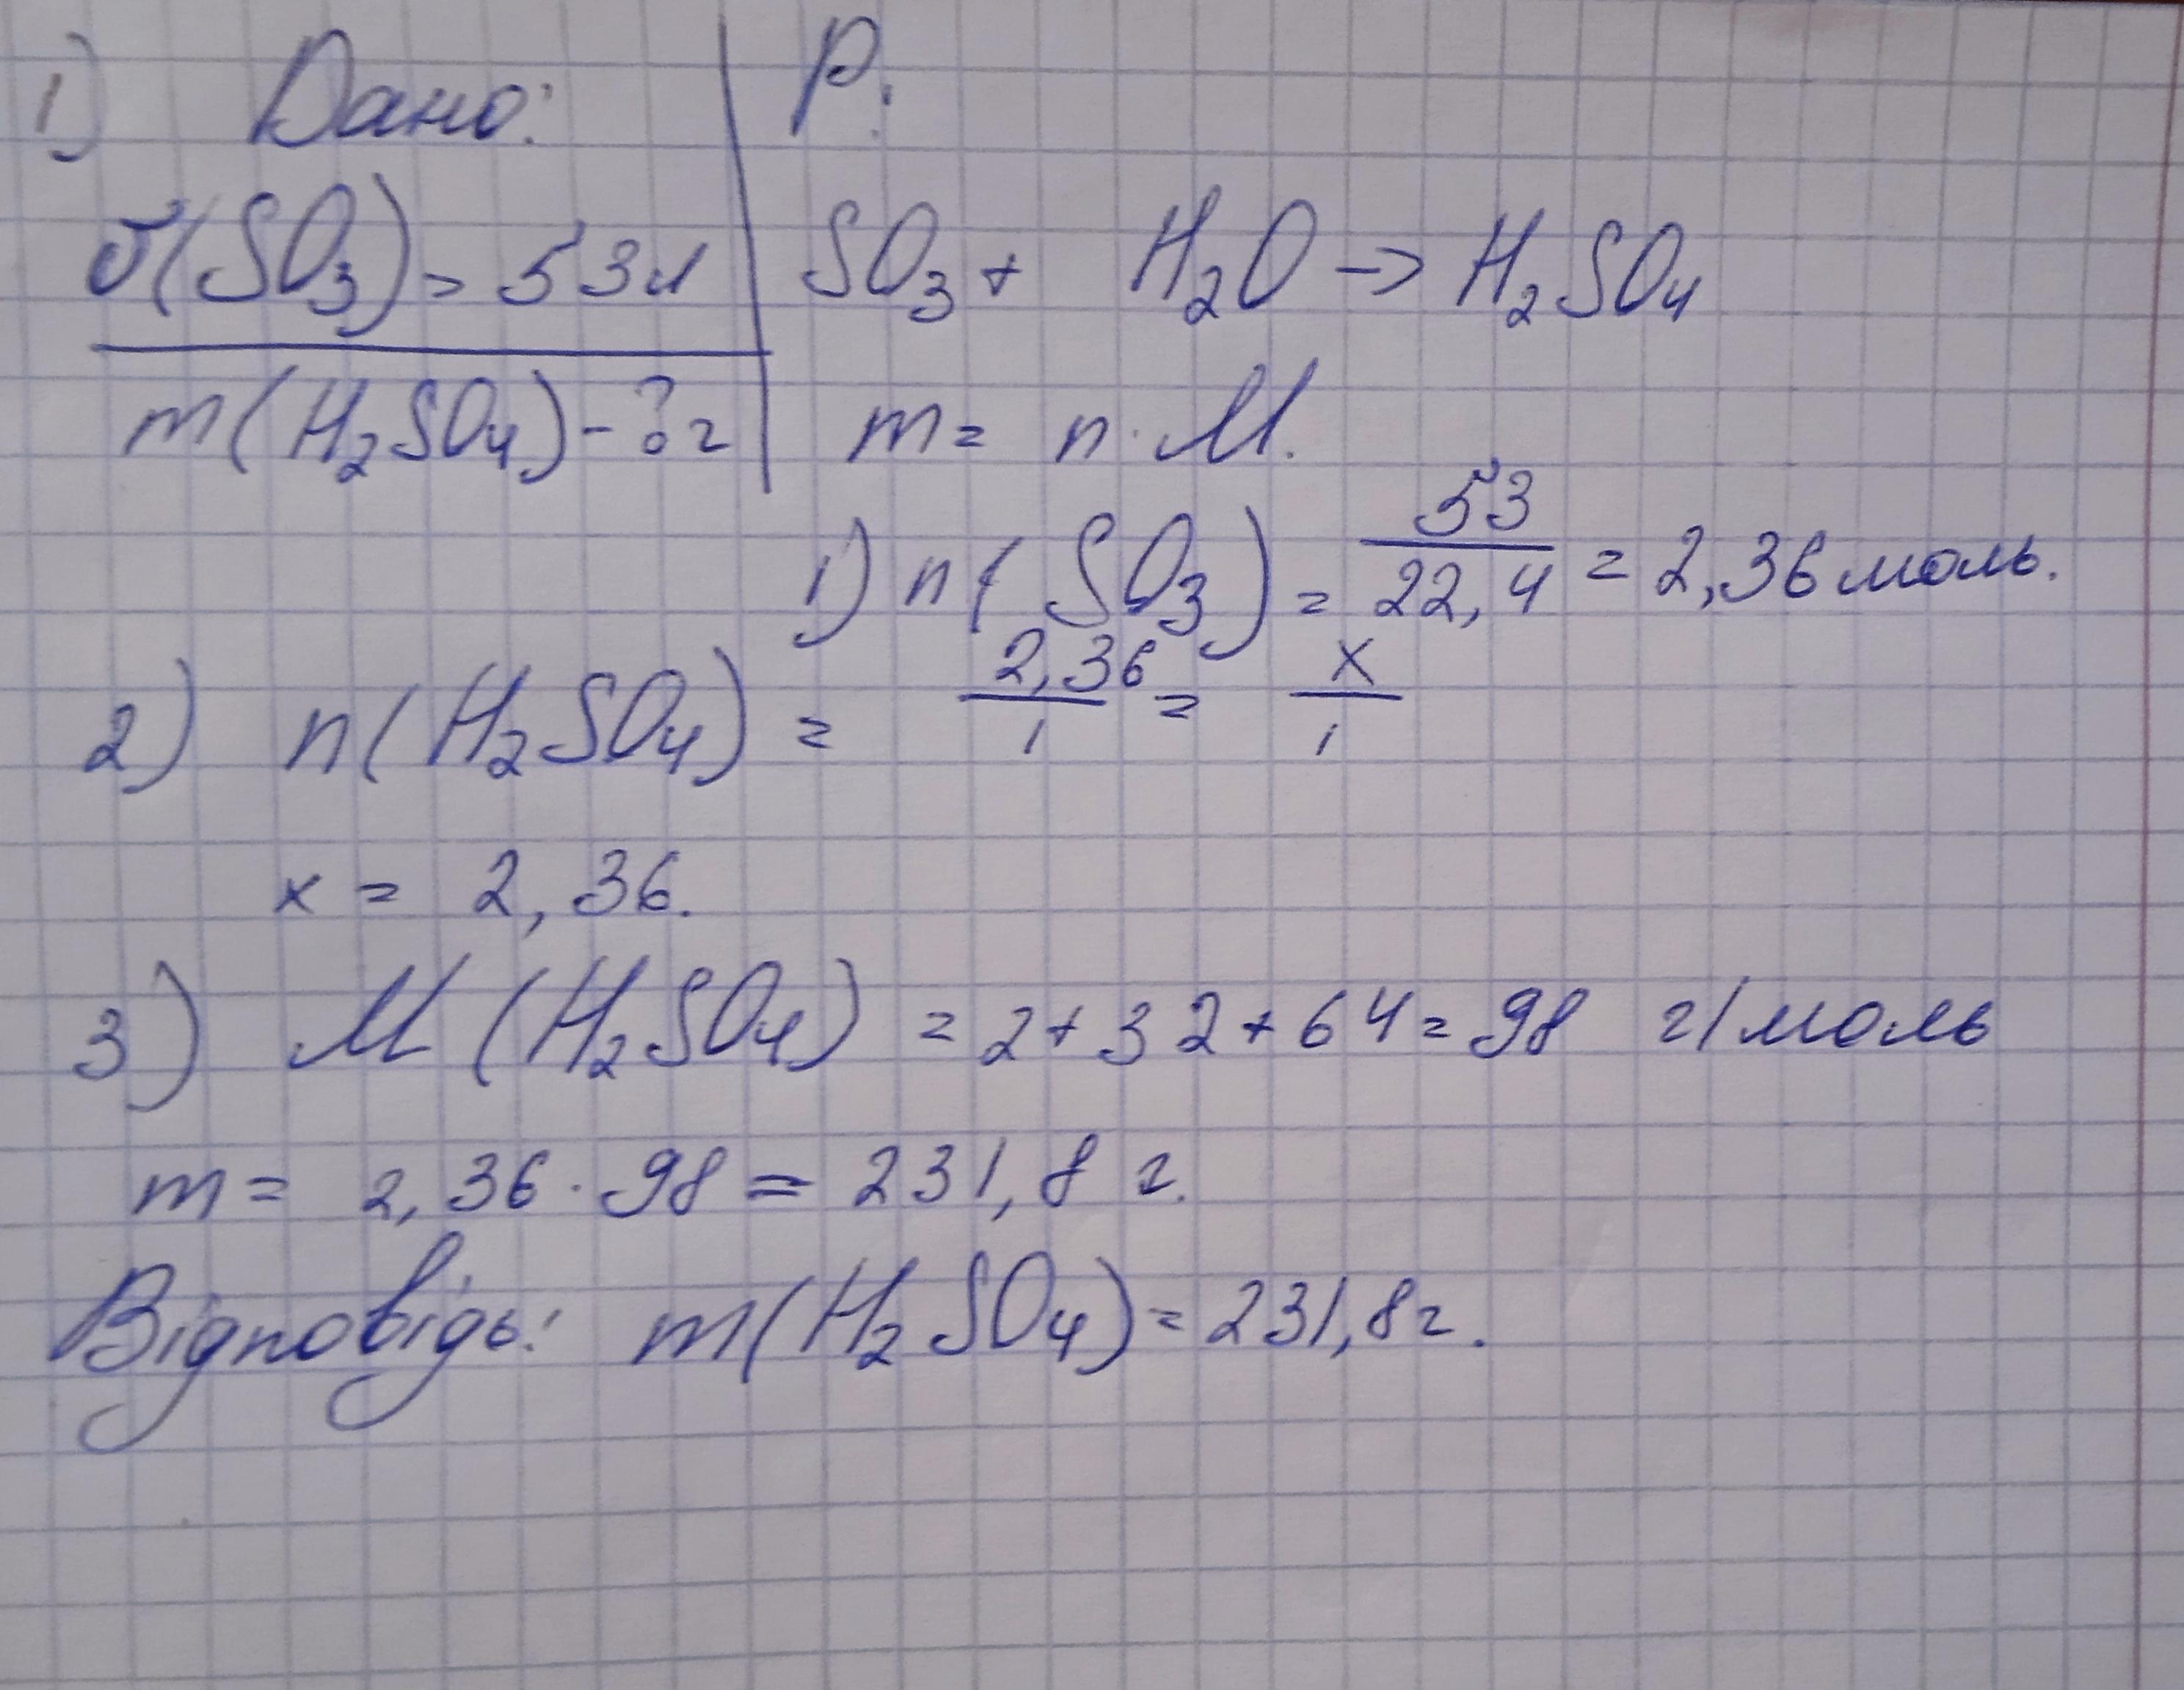 1) Дано: Р.
V(SO₃) = 53л SO₃ + H₂O → H₂SO₄
m(H₂SO₄) - ? г m = n · M.
1) n(SO₃) = 53/22,4 = 2,36 моль.
2) n(H₂SO₄) = 2,36/1 = x/1
x = 2,36.
3) M(H₂SO₄) = 2+32+64=98 г/моль
m = 2,36 · 98 = 231,8 г.
Відповідь: m(H₂SO₄) = 231,8г.